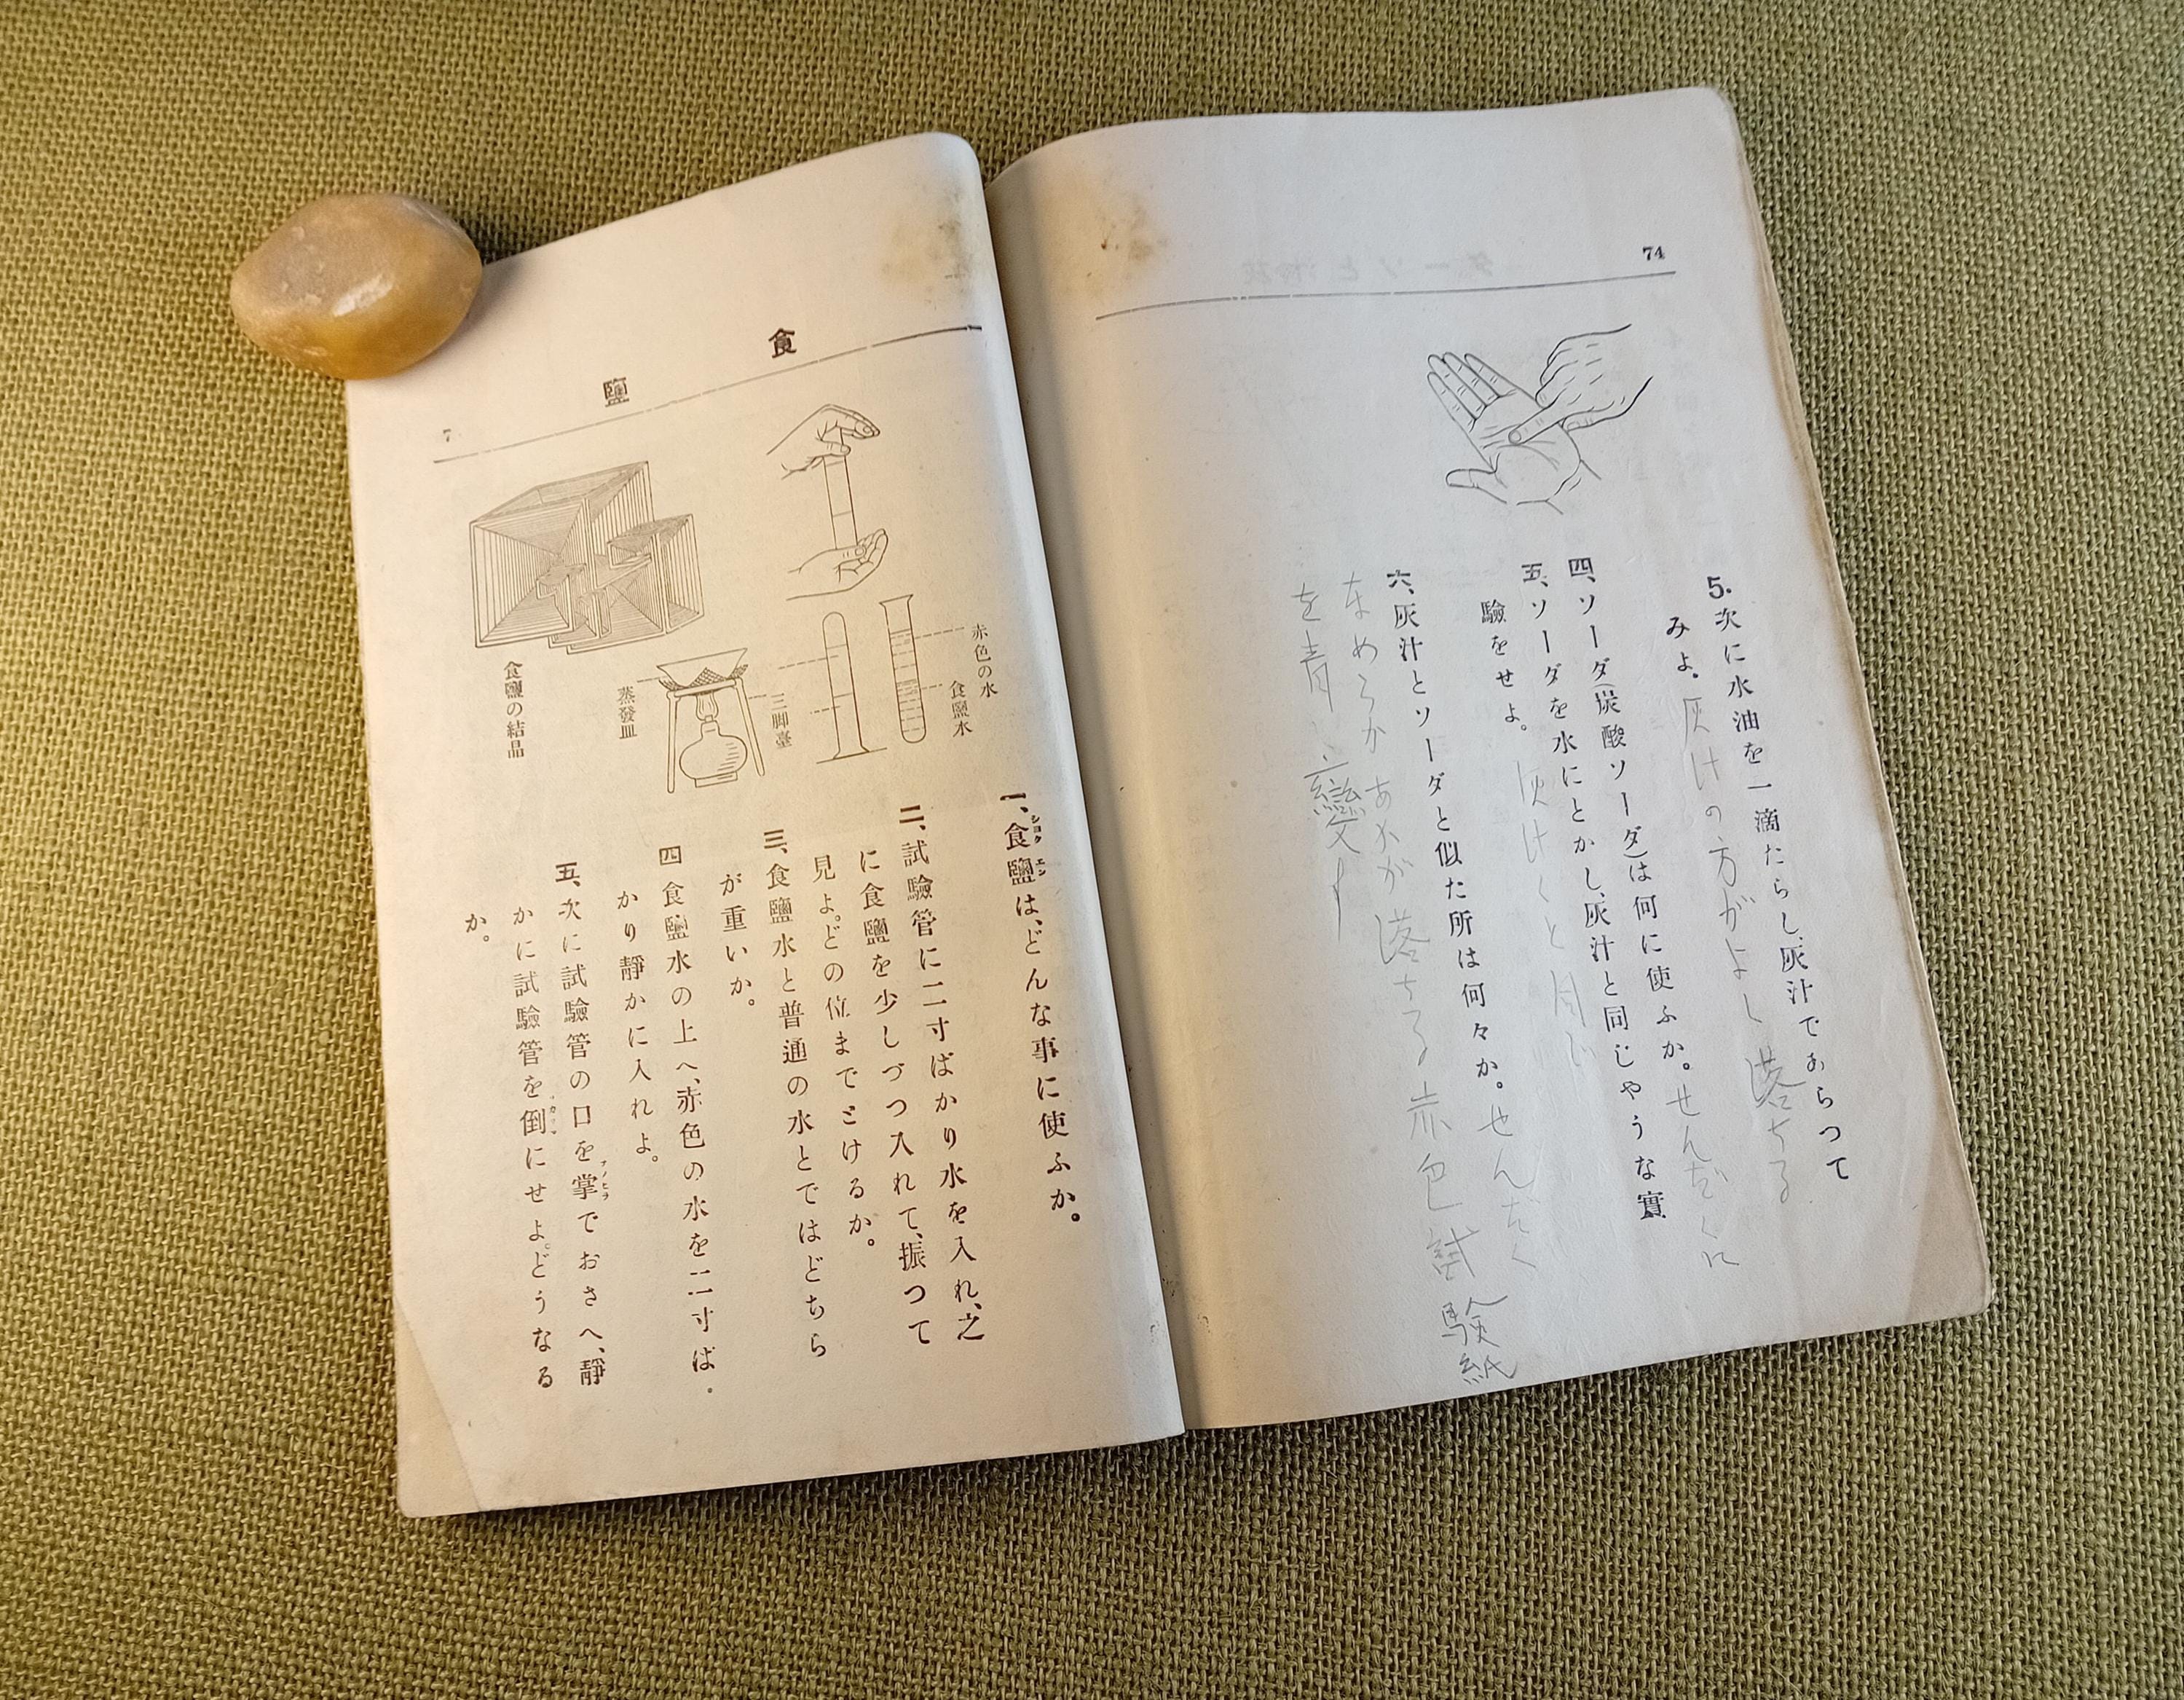 74
5.次に水油を一滴たらし、灰汁であらつて
みよ。灰汁の方がよし落ちる
四、ソーダ(炭酸ソーダ)は何に使ふか。せんだくに
五、ソーダを水にとかし、灰汁と同じやうな實
驗をせよ。灰汁くと同じ
六、灰汁とソーダと似た所は何々か。せんたく
あかが落ちる赤色試験紙
を青い變
食鹽
7
赤色の水
食鹽水
三脚臺
蒸發皿
食鹽の結晶
一、食鹽は、どんな事に使ふか。
ショクエン
二、試驗管に二寸ばかり水を入れ、之
に食鹽を少しづつ入れて、振つて
見よ。どの位までとけるか。
三、食鹽水と普通の水とではどちら
が重いか。
四食鹽水の上へ、赤色の水を二寸ば
かり靜かに入れよ。
五、次に試驗管の口を掌でおさへ、靜
かに試驗管を倒にせよ。どうなる
か。